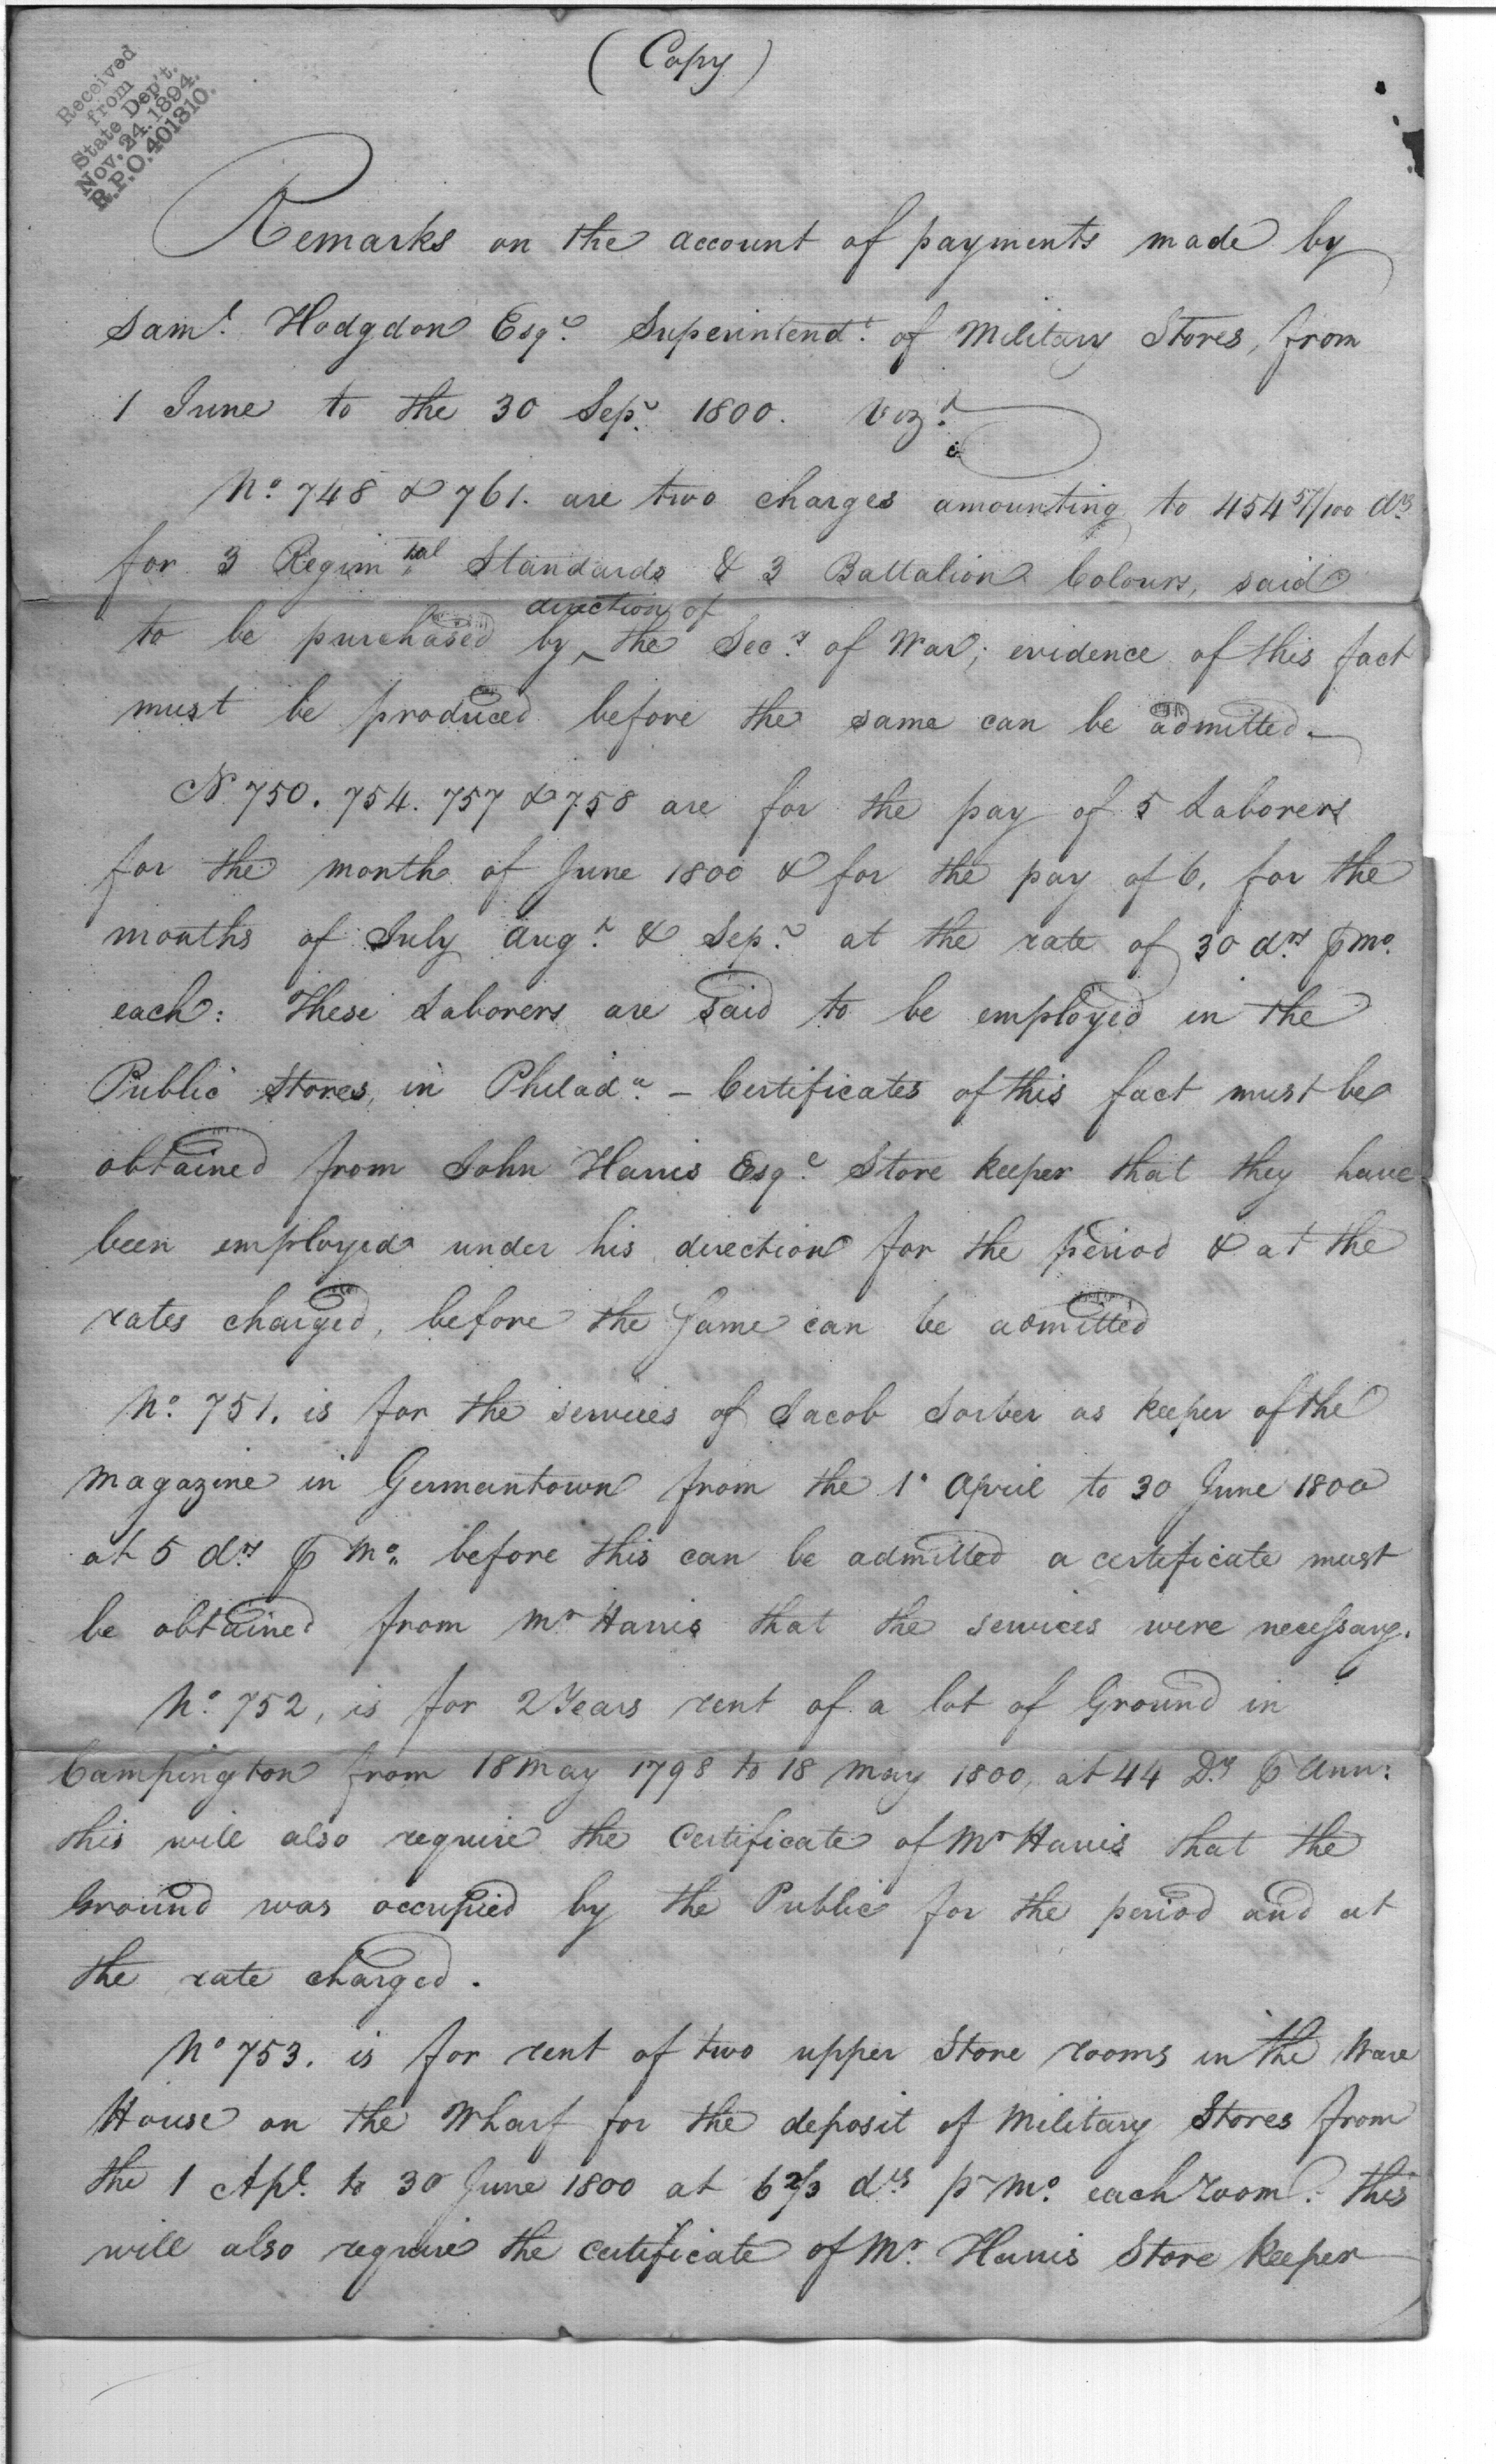 (Copy)
Received
from
State Dep't.
Nov. 24. 1894.
R.P.O. 401310.
Remarks on the account of payments made by
Saml. Hodgdon Esqe. Superintendt. of Military Stores, from
1 June to the 30 Sepr. 1800. Vizt.
No. 748 & 761. are two charges amounting to 454 57/100 drs.
for 3 Regimtal Standards & 3 Battalion Colours, said
direction of
to be purchased by ^ the Secy. of War; evidence of this fact
must be produced before the same can be admitted.
No 750. 754. 757 & 758 are for the pay of 5 Laborers
for the month of June 1800 & for the pay of 6, for the
months of July Augt. & Sepr. at the rate of 30 drs. ⅌ mo.
each: These Laborers are said to be employed in the
Public Stores, in Philada. – Certificates of this fact must be
obtained from John Harris Esqe. Store keeper that they have
been employed under his direction for the period & at the
rates charged, before the same can be admitted
No. 751. is for the services of Jacob Sorber as keeper of the
Magazine in Germantown from the 1 April to 30 June 1800
at 5 drs. ⅌ Mo. before this can be admitted a certificate must
be obtained from Mr Harris that the services were necessary.
No. 752, is for 2 Years rent of a lot of Ground in
Campington from 18 May 1798 to 18 May 1800, at 44 Drs. ⅌ Ann:
this will also require the Certificate of Mr Harris that the
Ground was occupied by the Public for the period and at
the rate charged.
No 753. is for rent of two upper Store rooms in the Ware
House on the Wharf for the deposit of Military Stores from
the 1 Apl. to 30 June 1800 at 6 2/3 drs. pr Mo. each Room. this
will also require the certificate of Mr. Harris Store keeper